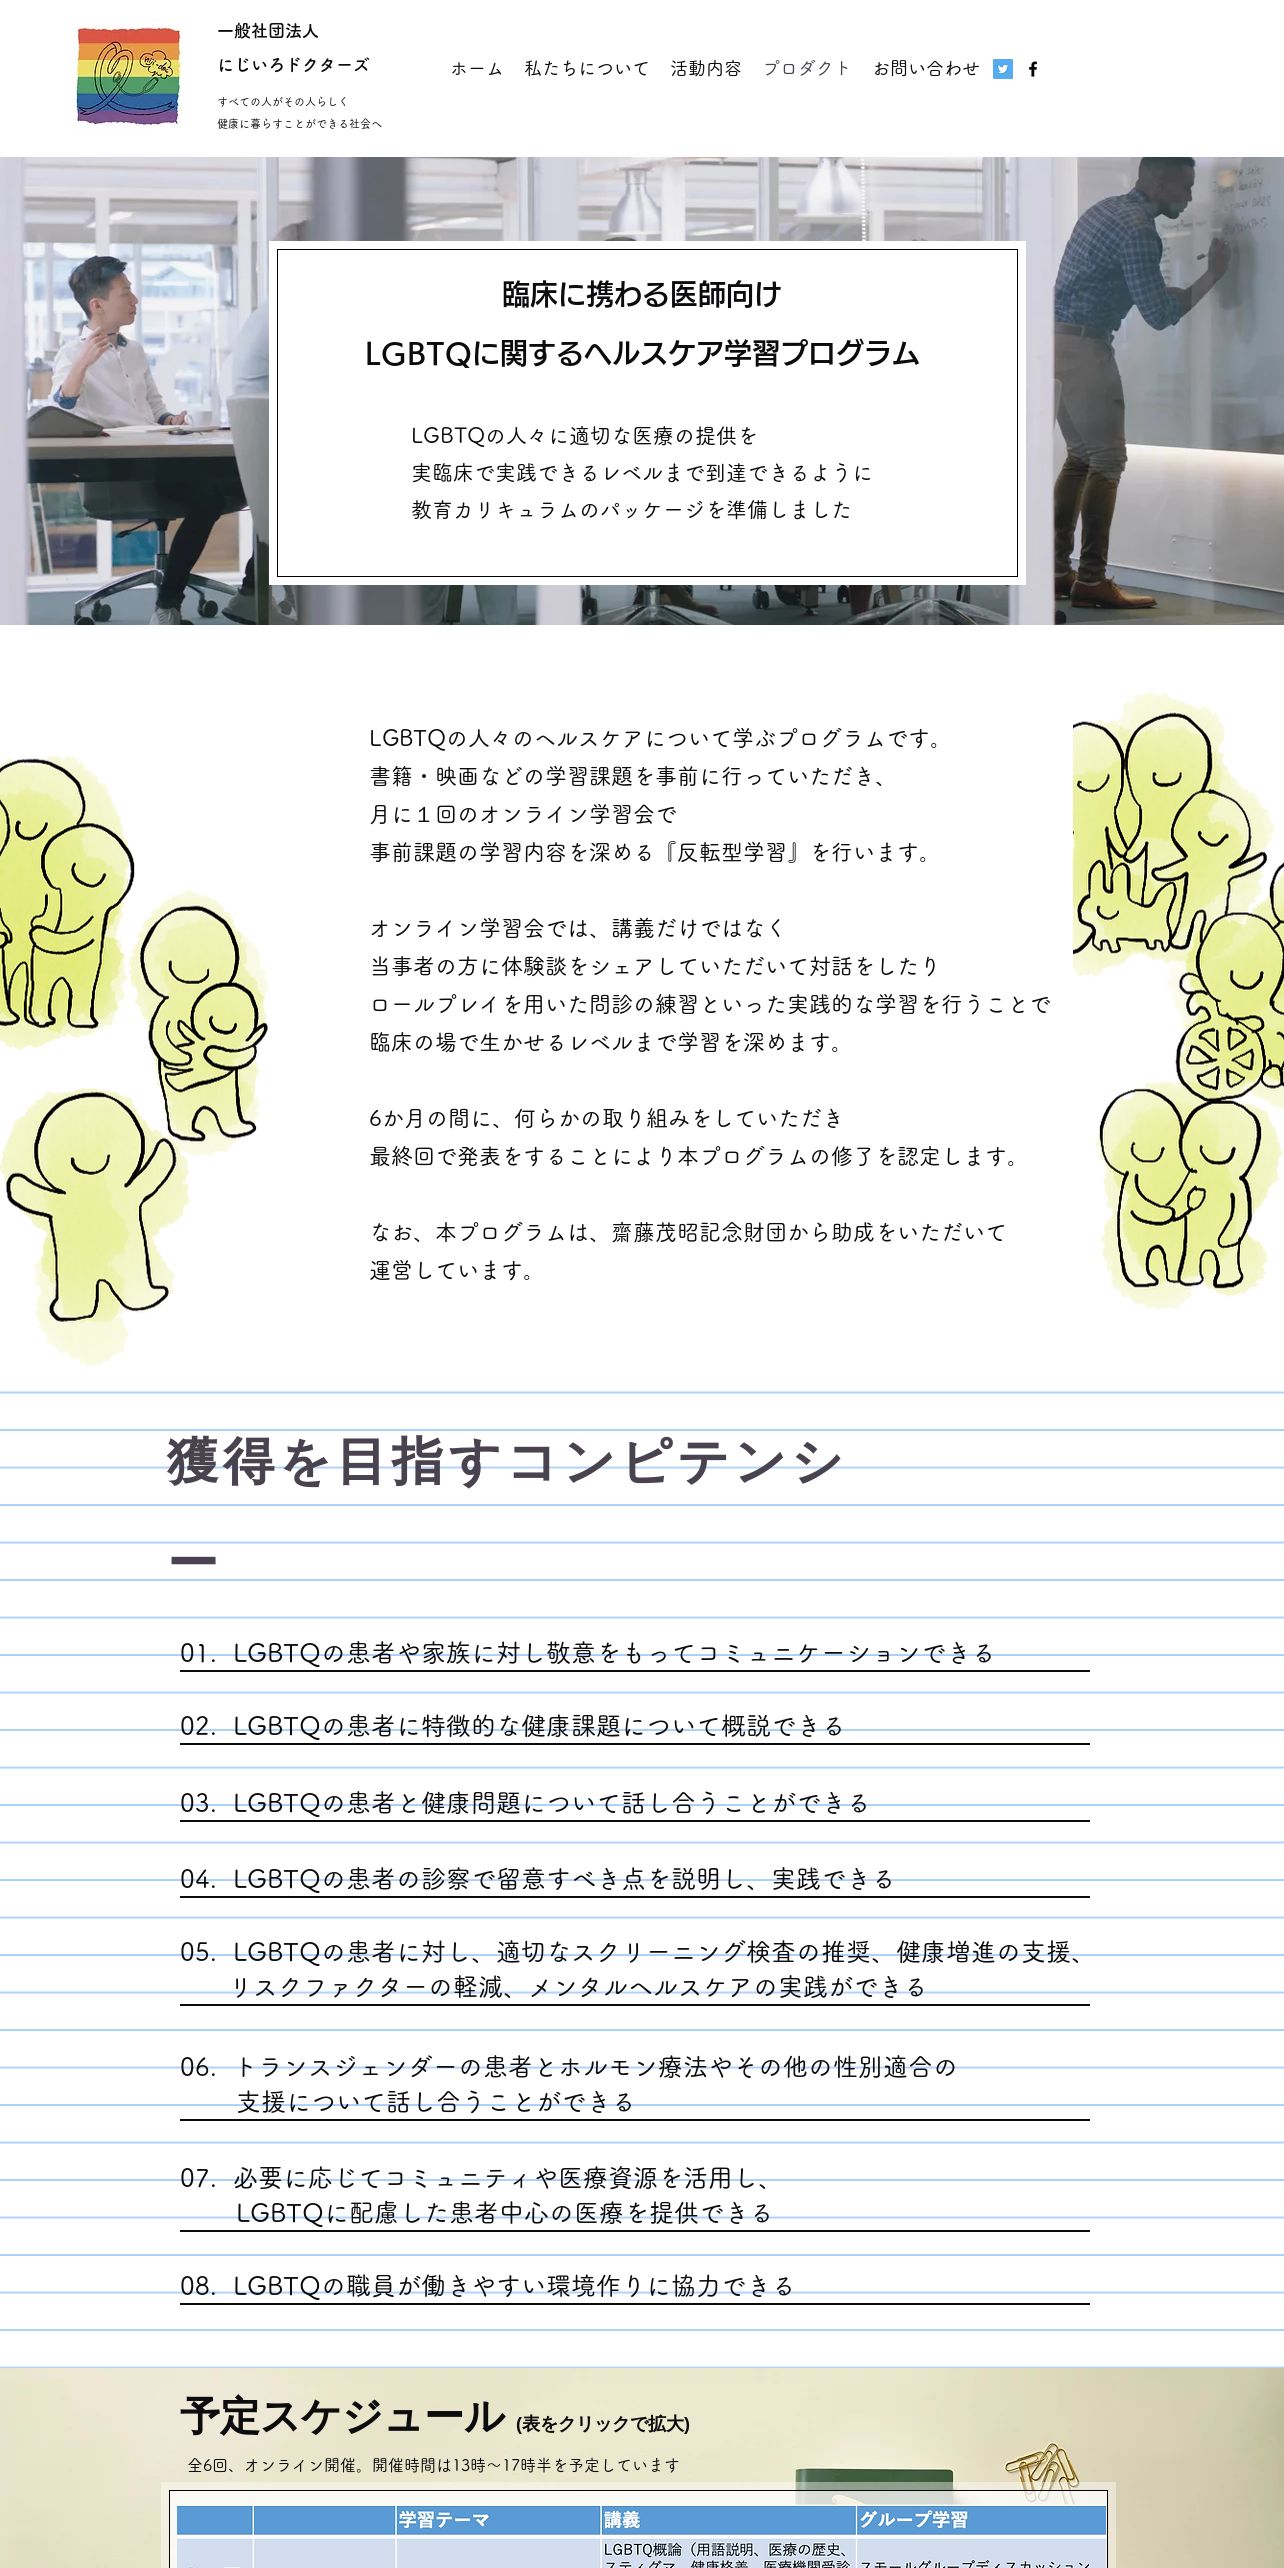 一般社団法人
にじいろドクターズ
すべての人がその人らしく
健康に暮らすことができる社会へ
ホーム 私たちについて 活動内容 プロダクト お問い合わせ
臨床に携わる医師向け
LGBTQに関するヘルスケア学習プログラム
LGBTQの人々に適切な医療の提供を
実臨床で実践できるレベルまで到達できるように
教育カリキュラムのパッケージを準備しました
LGBTQの人々のヘルスケアについて学ぶプログラムです。
書籍・映画などの学習課題を事前に行っていただき、
月に１回のオンライン学習会で
事前課題の学習内容を深める『反転型学習』を行います。
オンライン学習会では、講義だけではなく
当事者の方に体験談をシェアしていただいて対話をしたり
ロールプレイを用いた問診の練習といった実践的な学習を行うことで
臨床の場で生かせるレベルまで学習を深めます。
6か月の間に、何らかの取り組みをしていただき
最終回で発表をすることにより本プログラムの修了を認定します。
なお、本プログラムは、齋藤茂昭記念財団から助成をいただいて
運営しています。
獲得を目指すコンピテンシ
ー
01. LGBTQの患者や家族に対し敬意をもってコミュニケーションできる
02. LGBTQの患者に特徴的な健康課題について概説できる
03. LGBTQの患者と健康問題について話し合うことができる
04. LGBTQの患者の診察で留意すべき点を説明し、実践できる
05. LGBTQの患者に対し、適切なスクリーニング検査の推奨、健康増進の支援、
リスクファクターの軽減、メンタルヘルスケアの実践ができる
06. トランスジェンダーの患者とホルモン療法やその他の性別適合の
支援について話し合うことができる
07. 必要に応じてコミュニティや医療資源を活用し、
LGBTQに配慮した患者中心の医療を提供できる
08. LGBTQの職員が働きやすい環境作りに協力できる
予定スケジュール (表をクリックで拡大)
全6回、オンライン開催。開催時間は13時〜17時半を予定しています
学習テーマ 講義 グループ学習
LGBTQ概論（用語説明、医療の歴史、
スティグマ、健康格差、医療機関受診 スモールグループディスカッション